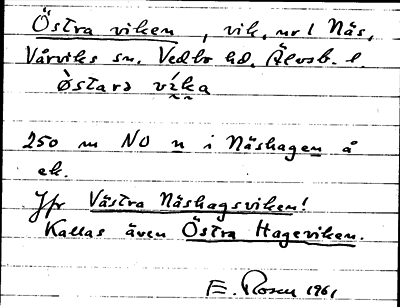 Östra viken, vik, nr 1 Näs,
Vårviks sn. Vedbo hd. Älvsb. l.
ø̀starə víka
250 m NO n i Näshagen å
ek.
Jfr Västra Näshagsviken!
Kallas även Östra Hageviken.
E. Rosen 1961